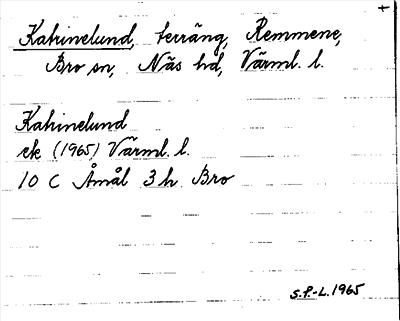 +
Katrinelund, terräng, Remmene,
Bro sn, Näs hd, Värml. l.
Katrinelund
ek (1965) Värml. l.
10 C Åmål 3 h Bro
S.P.-L. 1965